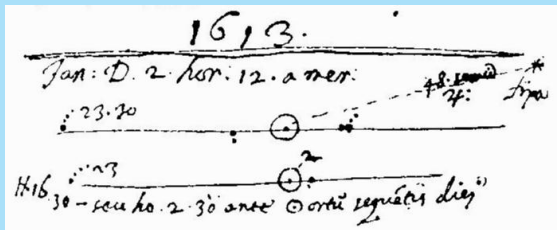 1613.
Jan: D. 2. hor. 12. a mer:
48. ♃: fixa
23.30
23 2
H.16.30 - seu ho. 2.30 ante ☉ ortũ sequẽtis diei